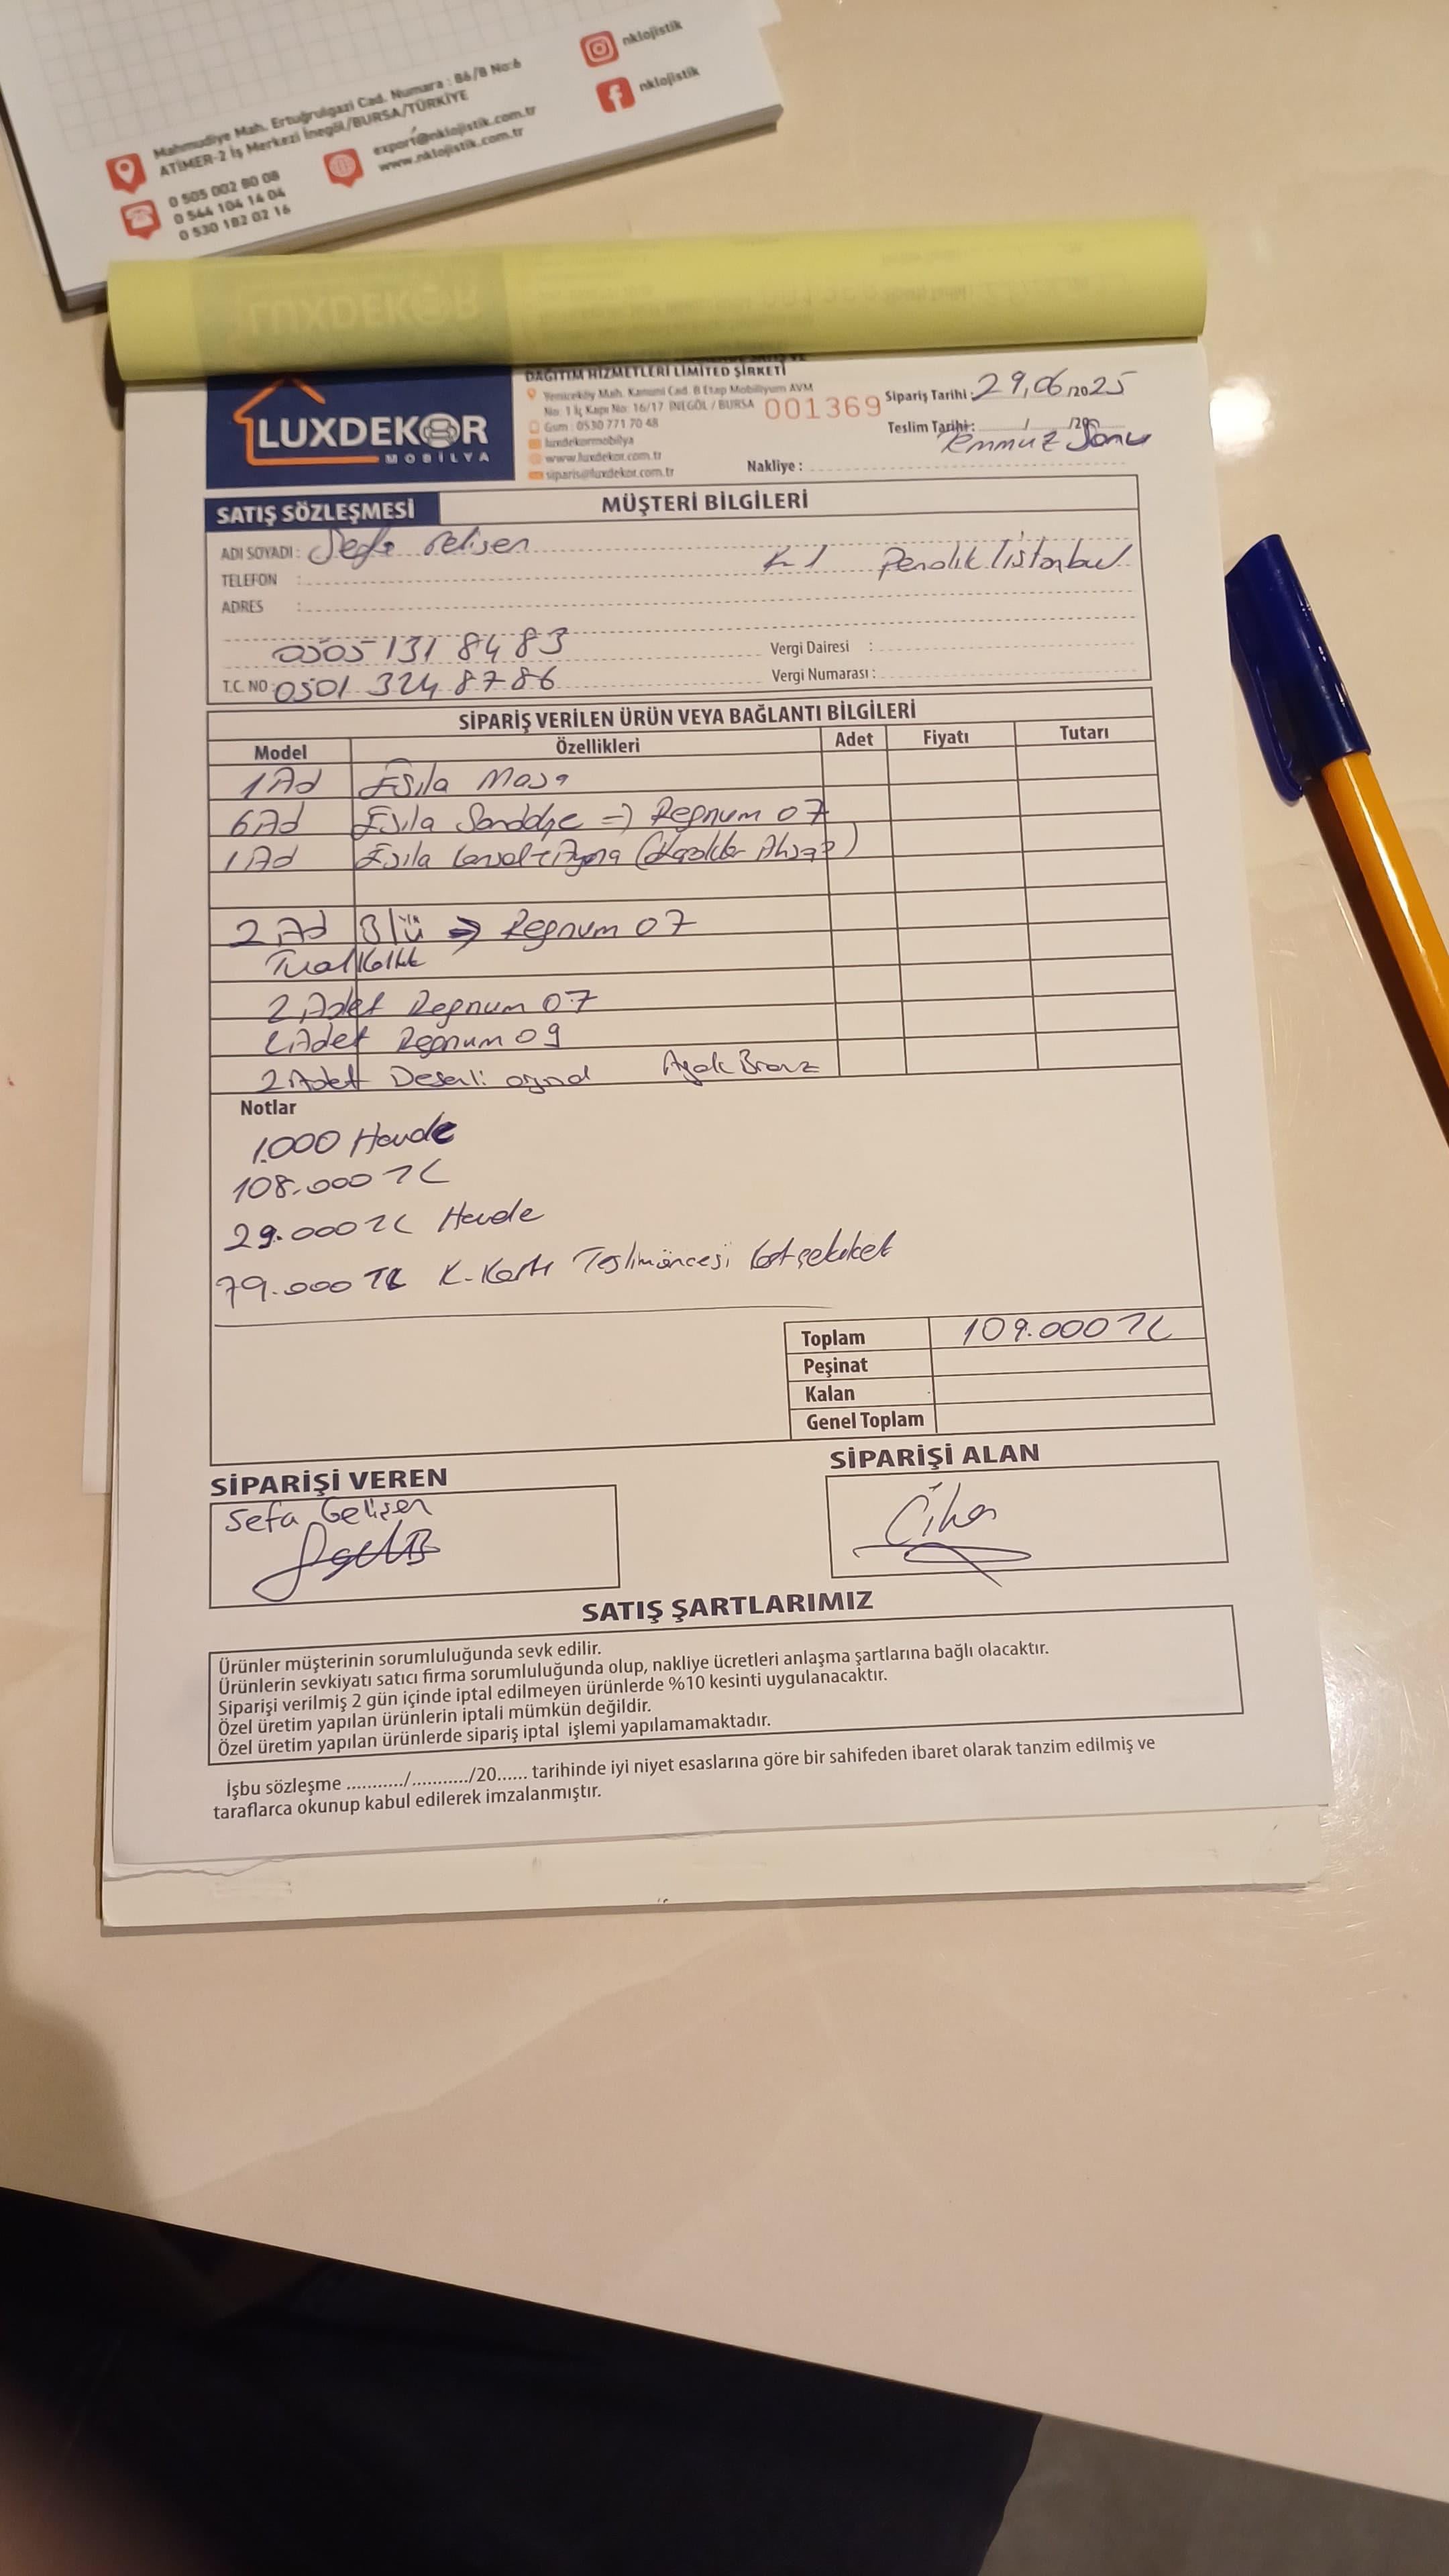 Mahmudiye Mah. Ertuğrulgazi Cad. Numara : 86/B No:6
ATİMER-2 İş Merkezi İnegöl/BURSA/TÜRKİYE
0 505 002 80 08
0 544 104 14 04
0 530 182 02 16
export@nklojistik.com.tr
www.nklojistik.com.tr
nklojistik
nklojistik
LUXDEKOR
DAĞITIM HİZMETLERİ LİMİTED ŞİRKETİ
Yeniceköy Mah. Kanuni Cad. B Etap Mobiliyum AVM
No: 1 İç Kapı No: 16/17 İNEGÖL / BURSA
Gsm : 0530 771 70 48
luxdekormobilya
www.luxdekor.com.tr
siparis@luxdekor.com.tr
001369
LUXDEKOR
MOBİLYA
Sipariş Tarihi : 29,06,2025
Teslim Tarihi : / /20
Temmuz Sonu
Nakliye :
SATIŞ SÖZLEŞMESİ
MÜŞTERİ BİLGİLERİ
ADI SOYADI : Sefa Gelişen
K-1 Pendik/İstanbul
TELEFON :
ADRES :
0505 131 84 83
Vergi Dairesi :
T.C. NO : 0501 324 87 86
Vergi Numarası :
SİPARİŞ VERİLEN ÜRÜN VEYA BAĞLANTI BİLGİLERİ
Model Özellikleri Adet Fiyatı Tutarı
1 Ad Esila Masa
6 Ad Esila Sandalye => Regnum 07
1 Ad Esila Ayna
2 Ad Regnum 07
2 Adet Regnum 07
Adet Regnum 09
2 Adet Desenli Ayak Bronz
Notlar
1.000 Havale
108.000 TL
29.000 TL Havale
79.000 TL K.Kartı Teslim öncesi
Toplam 109.000 TL
Peşinat
Kalan
Genel Toplam
SİPARİŞİ VEREN
Sefa Gelişen
SİPARİŞİ ALAN
SATIŞ ŞARTLARIMIZ
Ürünler müşterinin sorumluluğunda sevk edilir.
Ürünlerin sevkiyatı satıcı firma sorumluluğunda olup, nakliye ücretleri anlaşma şartlarına bağlı olacaktır.
Siparişi verilmiş 2 gün içinde iptal edilmeyen ürünlerde %10 kesinti uygulanacaktır.
Özel üretim yapılan ürünlerin iptali mümkün değildir.
Özel üretim yapılan ürünlerde sipariş iptal işlemi yapılamamaktadır.
İşbu sözleşme .........../.........../20...... tarihinde iyi niyet esaslarına göre bir sahifeden ibaret olarak tanzim edilmiş ve
taraflarca okunup kabul edilerek imzalanmıştır.